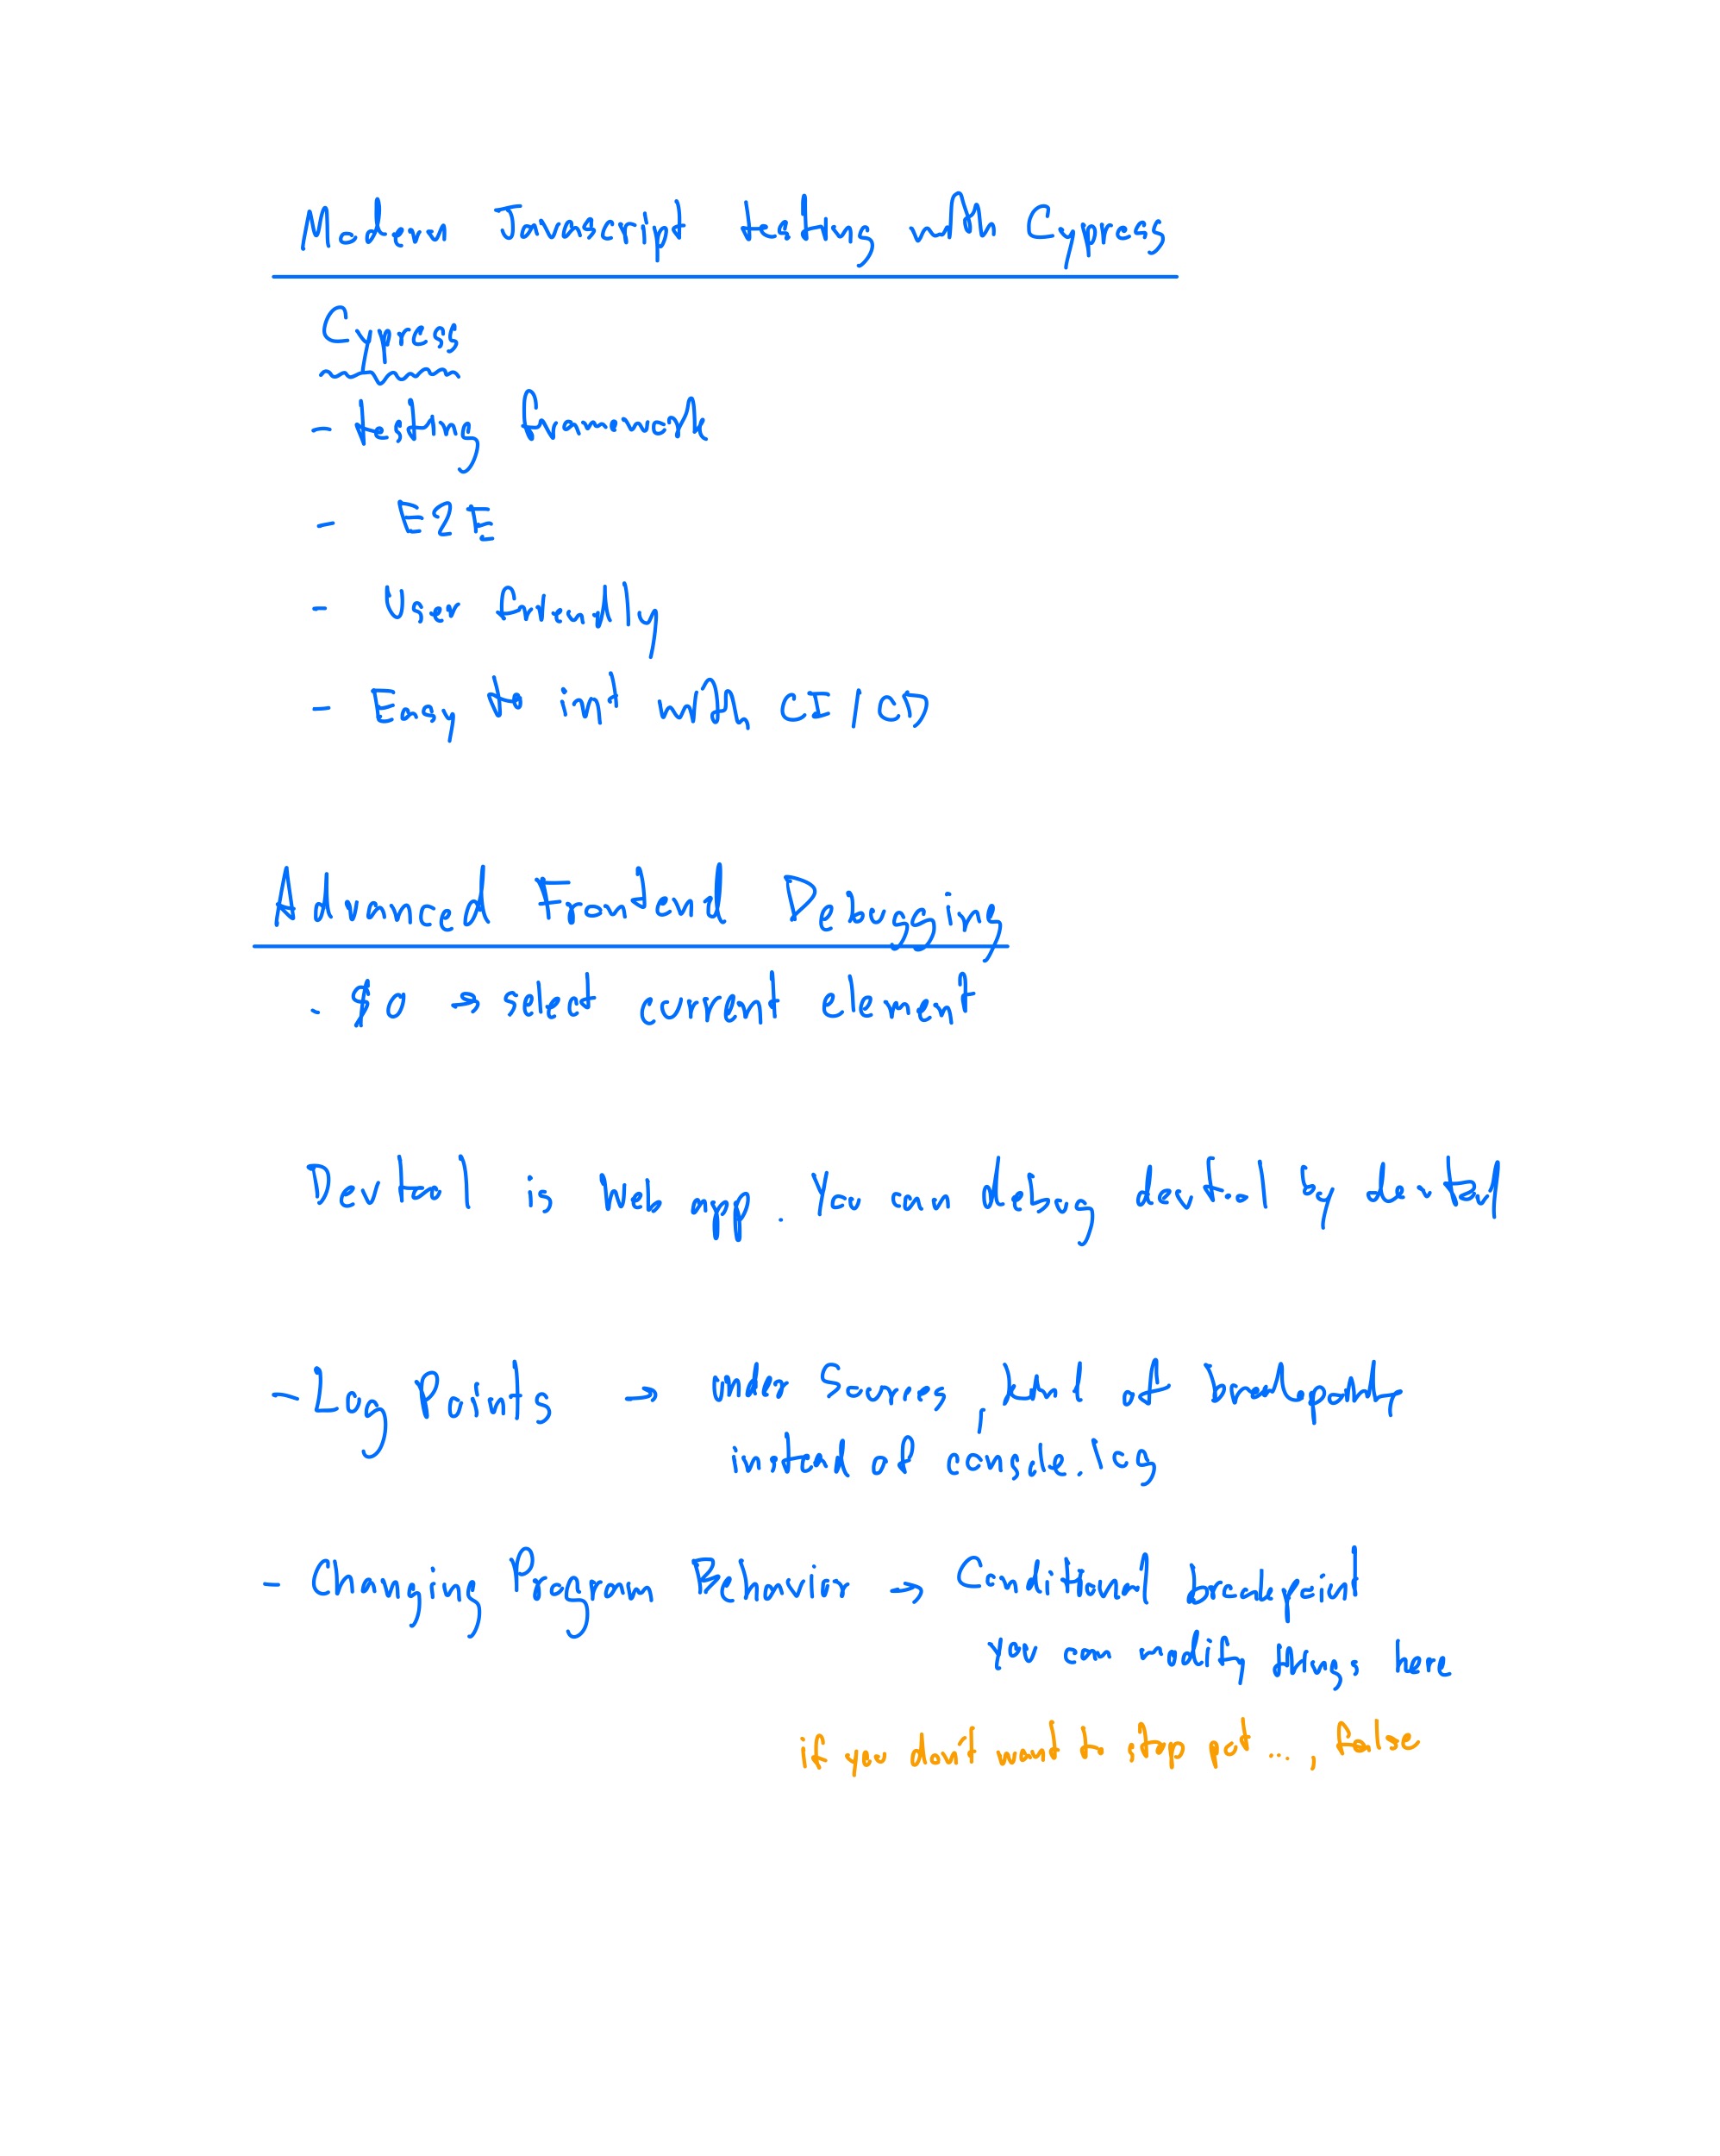 Modern Javascript testing with Cypress
Cypress
- testing framework
- E2E
- User friendly
- Easy to int with CI/CD
Advanced Frontend Debugging
. $0 → select current element
Dev tool is web app. You can debug devtool by devtool
- Log Points → under Sources, kind of breakpoint,
instead of console.log
- Changing Program Behavior → Conditional breakpoint
you can modify things here
if you don't want to stop put ..., false